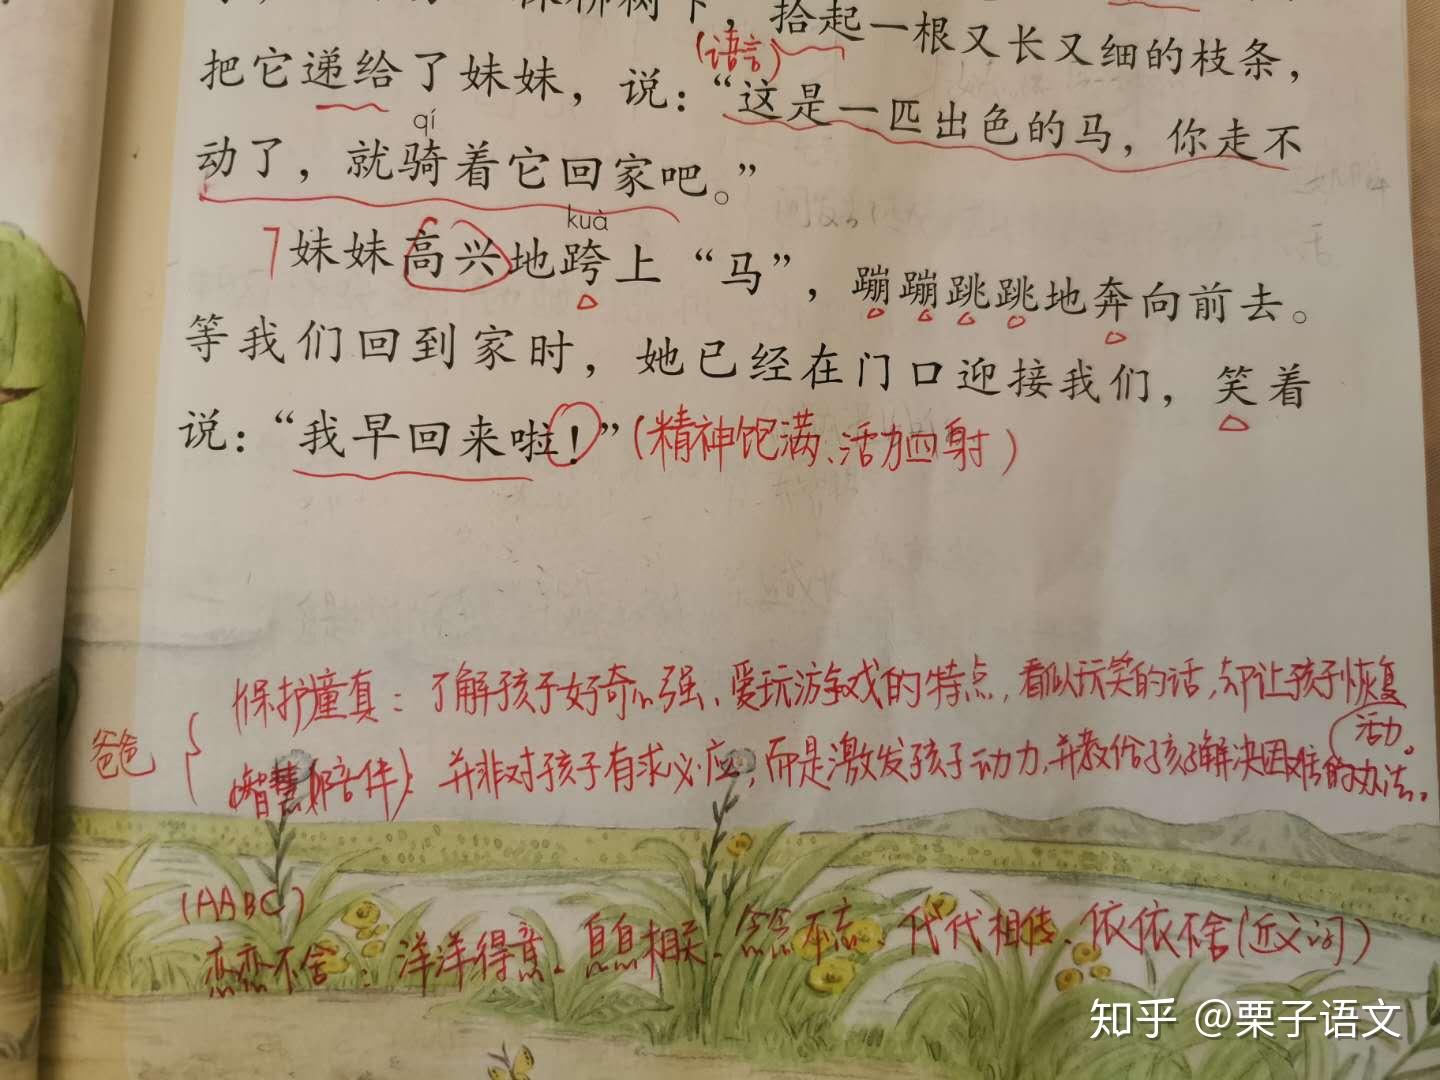 拾起一根又长又细的枝条，
(语言)
把它递给了妹妹，说：“这是一匹出色的马，你走不
qí
动了，就骑着它回家吧。”
kuà
7妹妹高兴地跨上“马”，蹦蹦跳跳地奔向前去。
等我们回到家时，她已经在门口迎接我们，笑着
说：“我早回来啦！”(精神饱满、活力四射)
保护童真：了解孩子好奇心强、爱玩游戏的特点，看似玩笑的话，却让孩子恢复
活力。
爸爸
智慧陪伴：并非对孩子有求必应，而是激发孩子动力，并教给孩子解决困难的办法。
(AABC)
恋恋不舍：洋洋得意、息息相关、念念不忘、代代相传、依依不舍(近义词)
知乎 @栗子语文